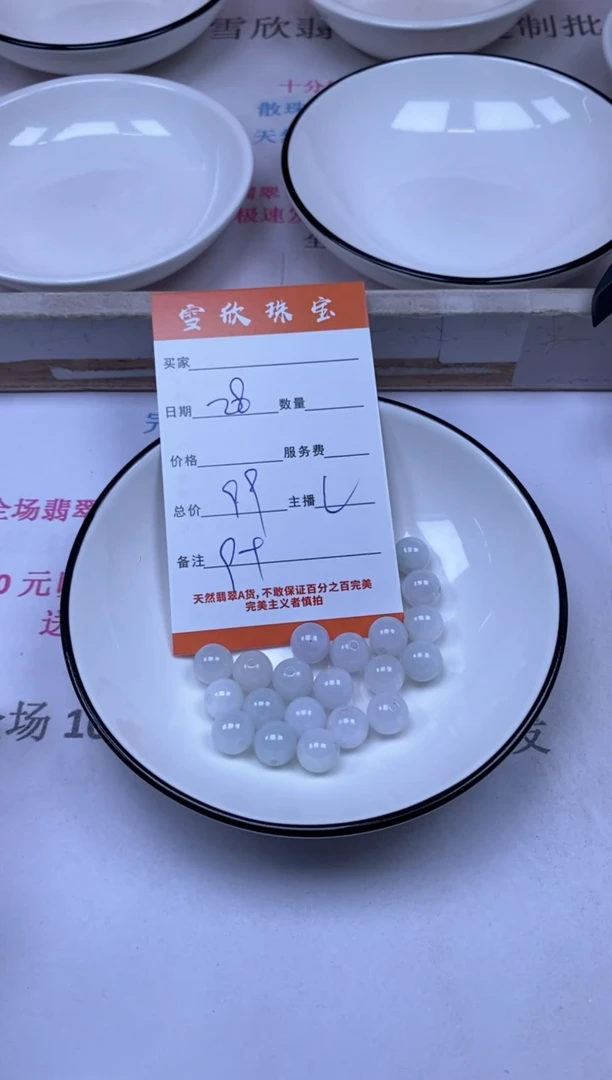 雪欣翡
制批
十分
散珠
天然
翡翠
极速发
全
雪欣珠宝
买家
日期 28 数量
价格 服务费
总价 99 主播
备注
天然翡翠A货,不敢保证百分之百完美
完美主义者慎拍
全场翡翠
0元
送
场 10
友